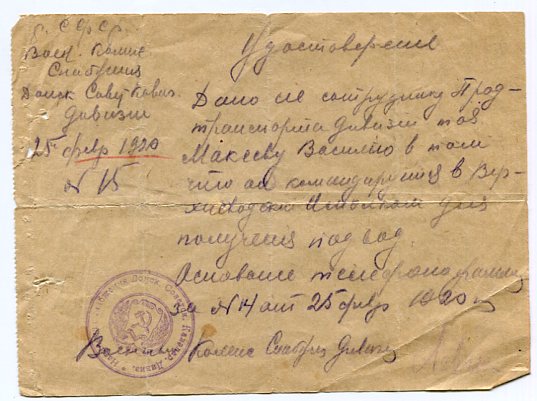 Р.С.Ф.С.Р.
Воен. Комис
Снабжения
Донск Совет Кавал.
дивизии
25 февр 1920
№ 15
Удостоверение
Дано сие сотруднику Прод-
транспорта дивизии тов
Макееву Василию в том
что он командируется в Вер-
для
получения подвод.
Основание телефонограмма
за № 14 от 25 февр 1920 г
Военный Комис Снабжен Дивизии